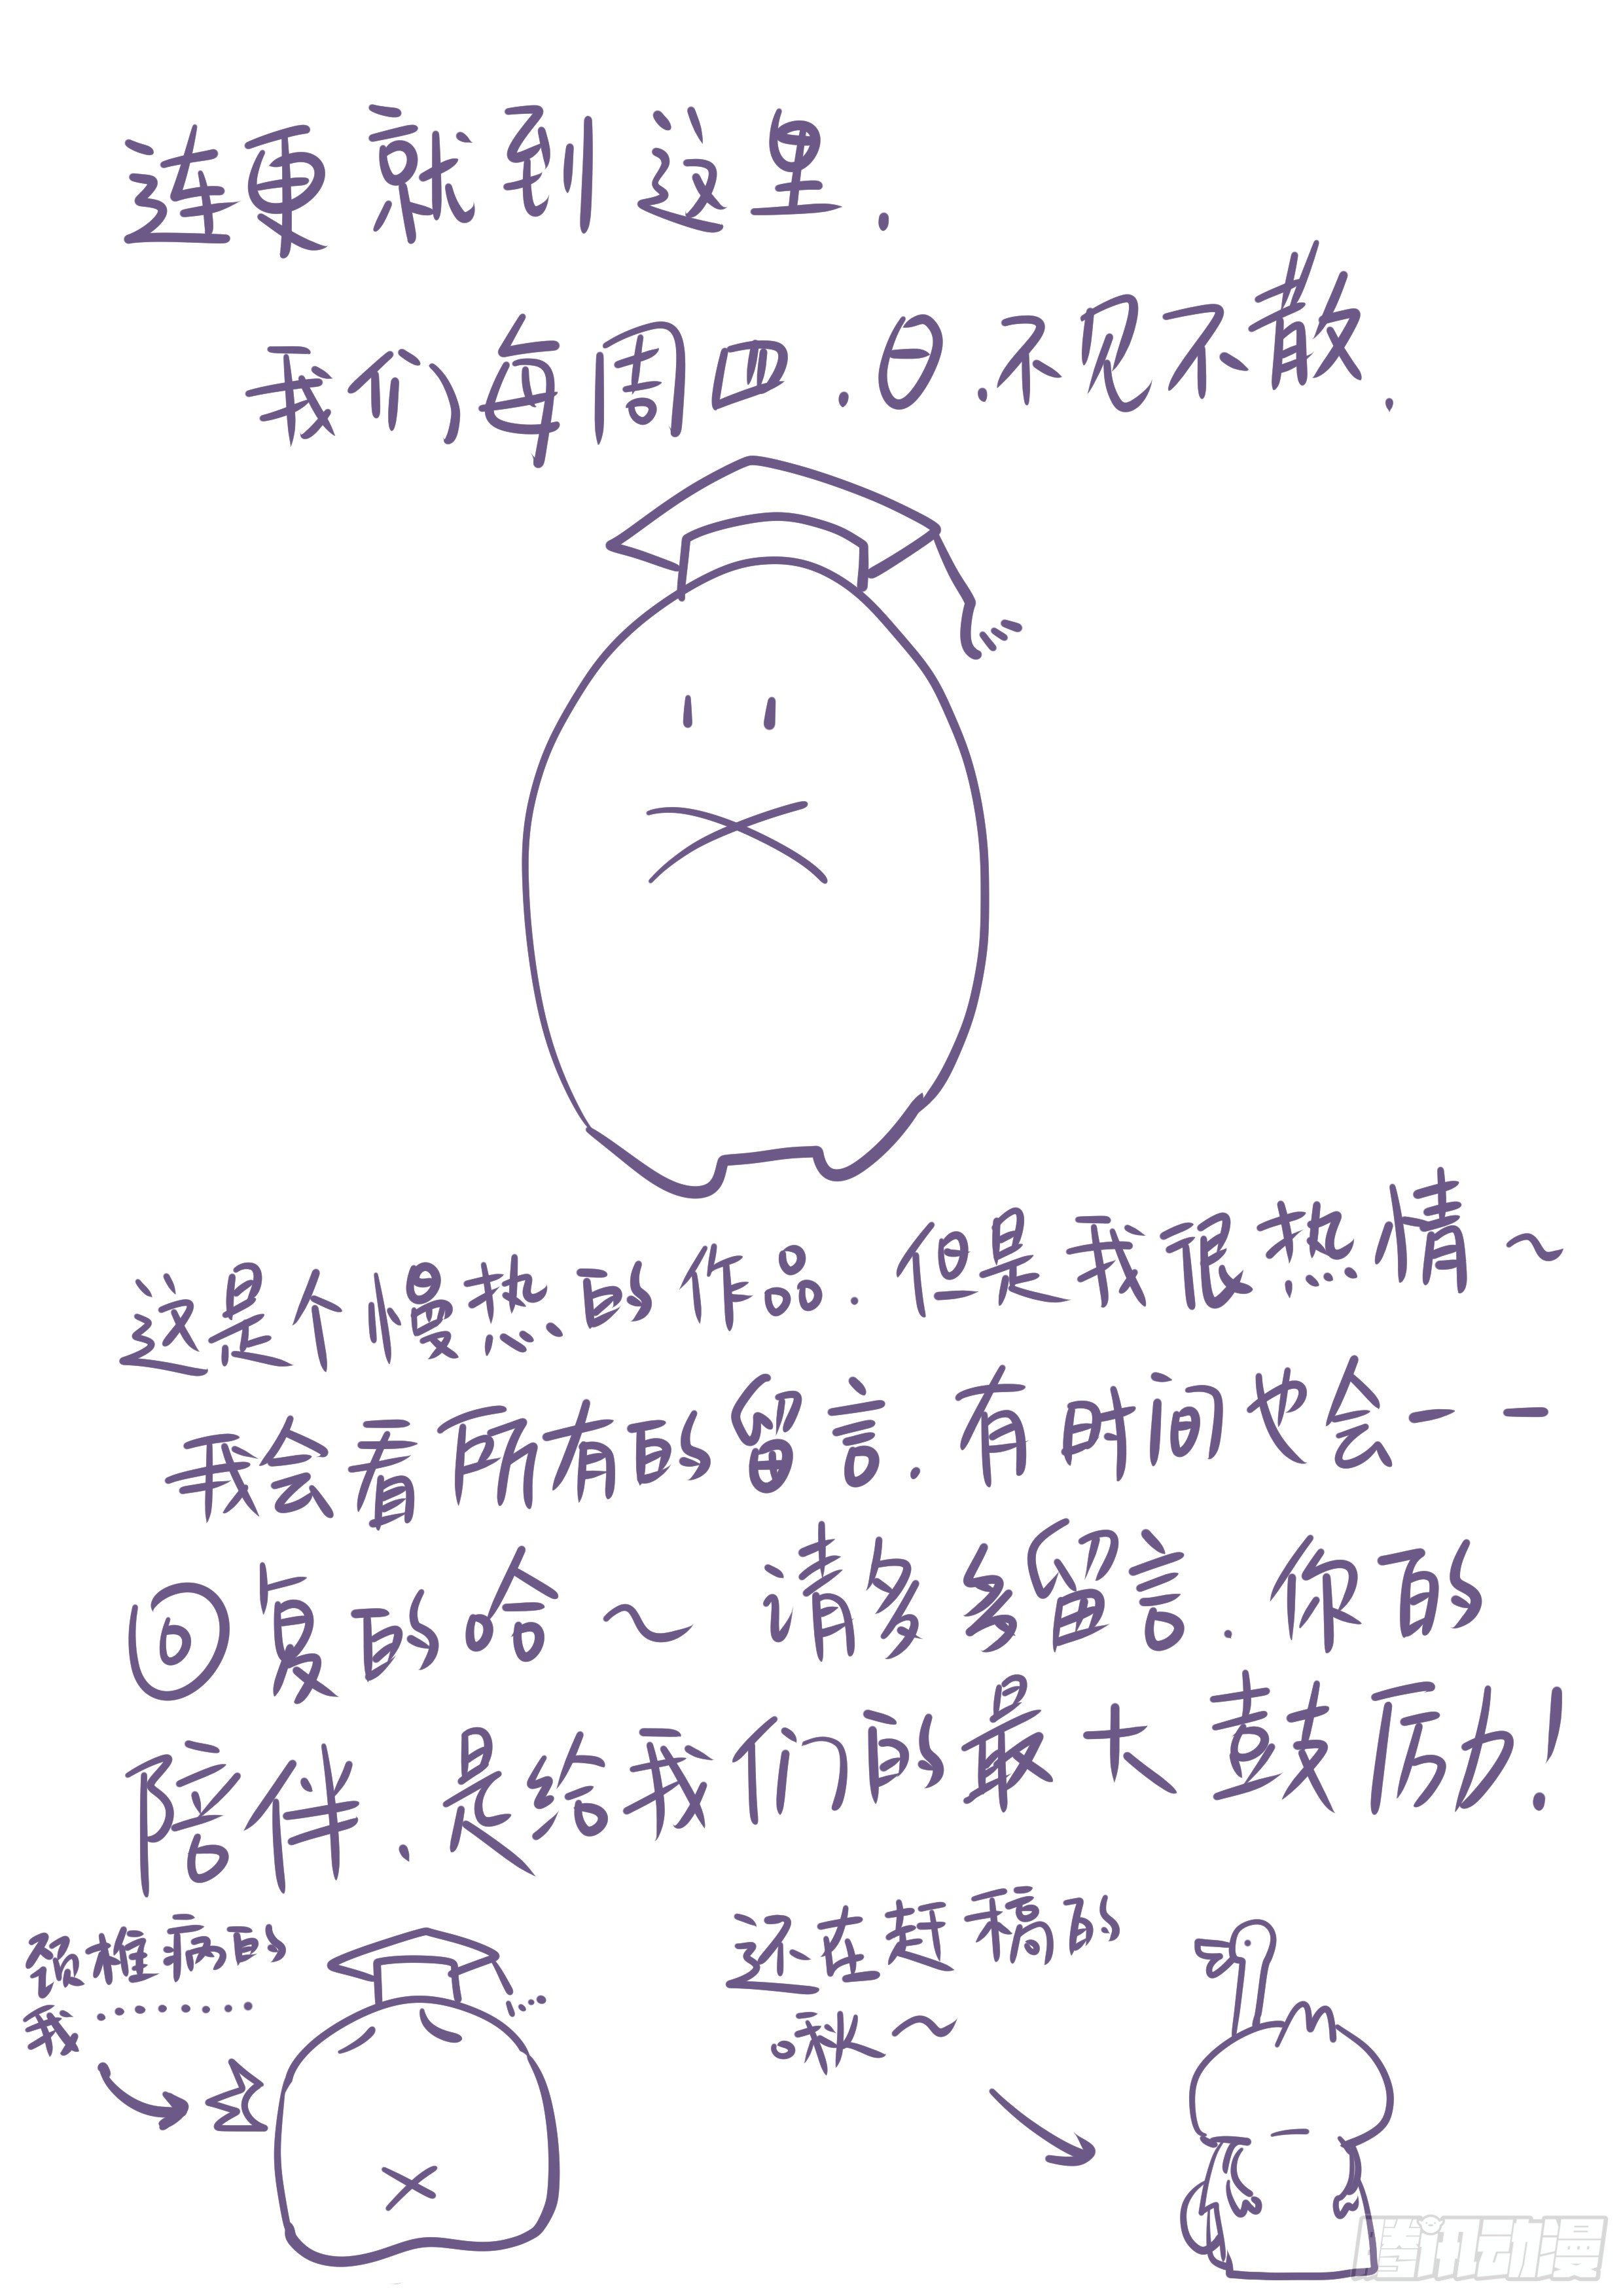 连更就到这里.
我们每周四.日.不见不散.
这是个慢热的作品.但是我很热情~
我会看所有的留言.有时间也会一一
回复的哈~ 请多多留言.你的
陪伴.是给我们的最大鼓励!
颈椎病的
我.........
还在赶稿的
咻~